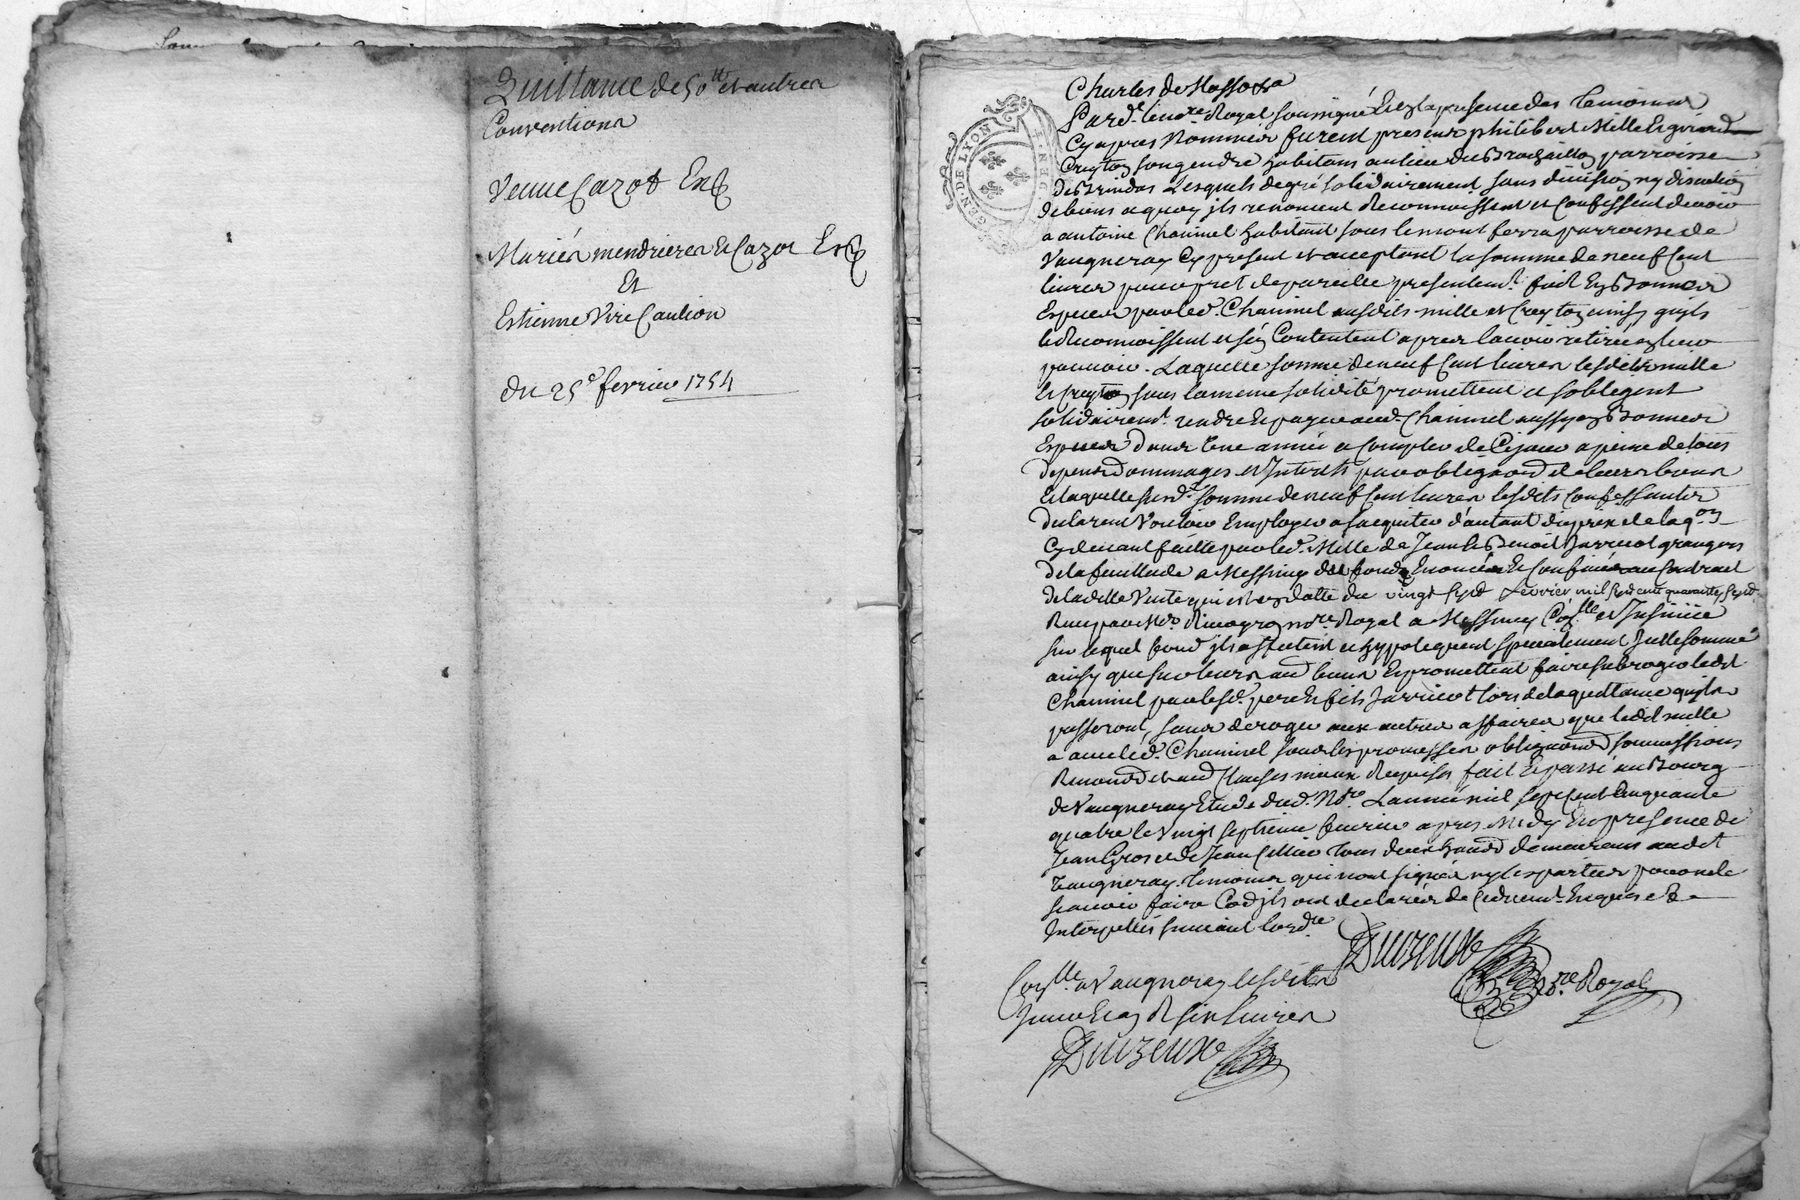 Quittance de 50 tt et autres
Conventions
Veuve Cazot Exp
Mariés mendrieres et Cazot Exp
Et
Estienne Vire Caution
du 25e fevrier 1754
GEN. DE LYON
Pard. le no.re Royal soussigné Et en la presence des temoins
Cy apres Nommes furent presents philibert Mille Et girard
Creyton son gendre habitans au lieu du parroisse
de Brindas Lesquels de gré solidairement sans division ny discution
de biens a quoy ils renoncent Reconnoissent et Confessent devoir
a antoine Chaninel habitant sous le mont ferra parroisse de
Vaugneray Cy present et acceptant la somme de neuf Cent
livres pour pret de pareille presentem.t fait En Bonnes
Especes par led. Chaninel ausdits mille et Creyton ainsy quils
le Reconnoissent et s'en Contentent apres l'avoir retirée en leur
pouvoir. Laquelle somme de neuf Cent livres lesdits mille
Et Creyton sous la meme solidité promettent et soblegent
solidairem.t rendre Et payer aud. Chaninel aussy en Bonnes
Especes dans Une année a Compter de Cejour a peine de tous
depens Dommages et Interets par obligaõn de leurs biens
Et laquelle susd. somme de neuf Cent livres lesdits Confessantes
declarent Vouloir Employer a sacquiter d'autant du prix de la
Cy devant faitte par led. Mille de Jean Et Benoit Jarricot grangers
de la feuillade a Messimy des fonds Enoncés Et Confinés au Contract
de laditte Vente qui est en datte du vingt sept fevrier mil sept cent quarante sept
Reçu par M.e no.re Royal a Messimy Con.llé et Insinué
sur lequel fond ils affectent et hypotequent specialement Ladte Somme
ainsy que sur leurs biens Et promettent faire subroger ledit
Chaninel par lesd. pere Et fils Jarricot lors de la quittance quils
passeront, sans deroger aux autres affaires que ledit mille
a avec led. Chaninel sous les promesses obligaõns soumissions
Renonõns et Clauses mieux Requises fait Et passé au Bourg
de Vaugneray Etude dud. No.re L'an mil sept Cent Cinquante
quatre le Vingt septieme fevrier apres Midy En presence de
Jean Gros et de Jean Cellier tous deux demeurans audit
Vaugneray temoins qui n'ont signé ny les parties pour ne le
scavoir faire Come ils ont declarés de Ce duem.t Enquis et
Interpellés suivant l'ord.ce
Duvzeux no.re Royal
Con.llé a Vaugneray lesdits
Jour Et an R six livres
Duvzeux